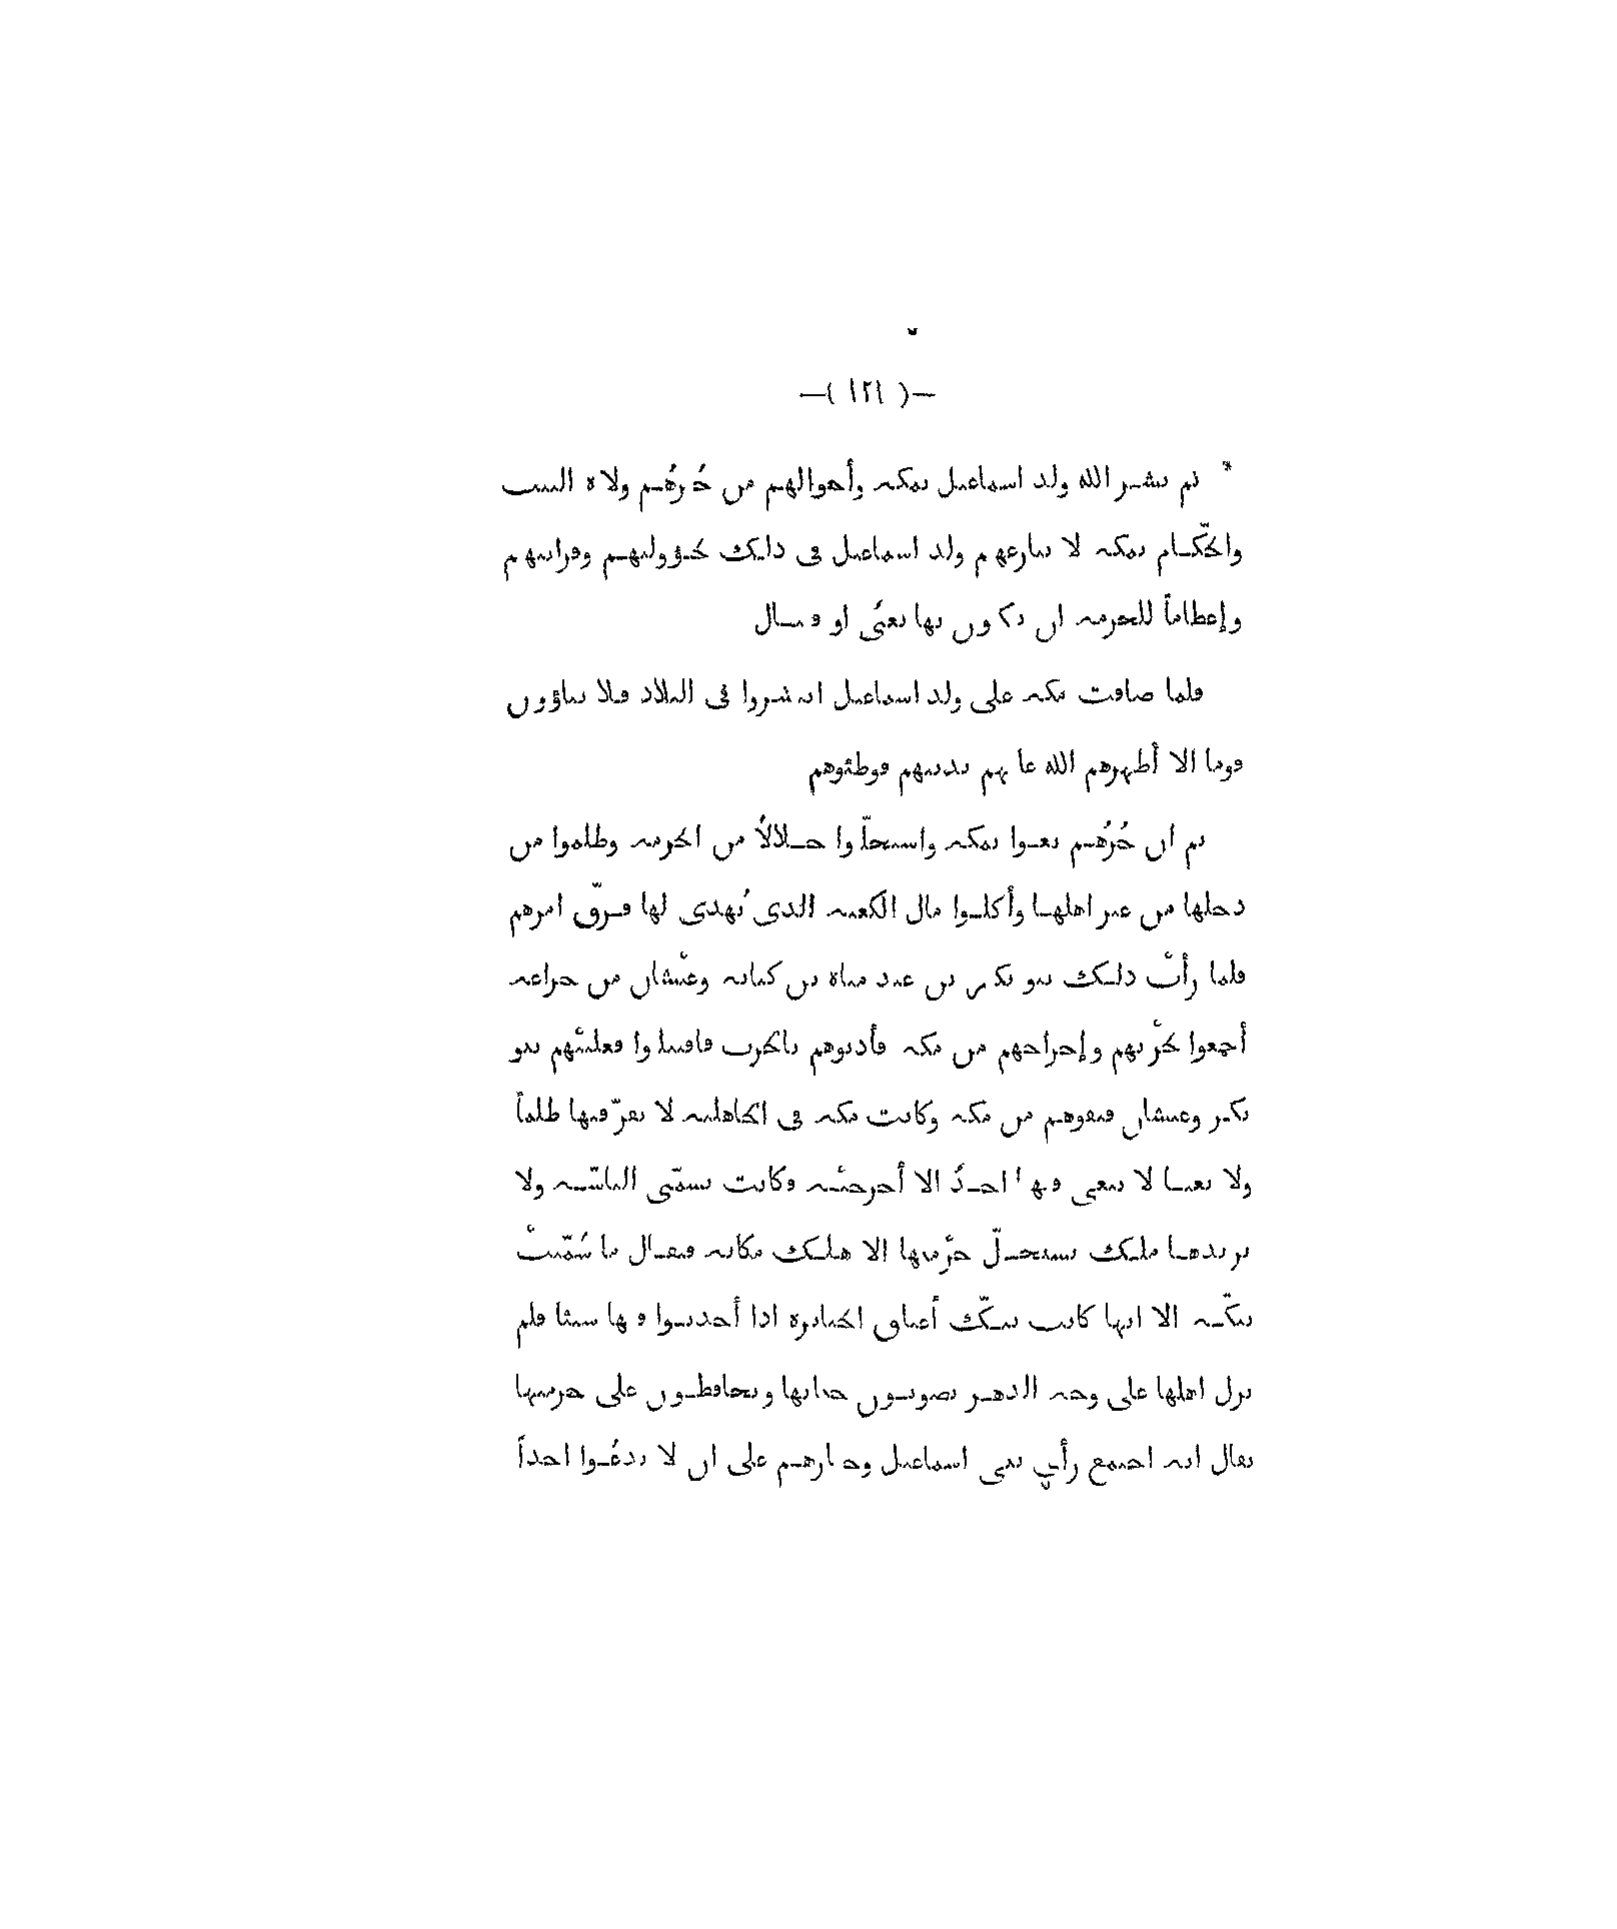 —( ١٢١ )—
* ثم نشر الله ولد اسماعيل بمكة وأخوالهم من جُرهُم ولاة البيت
والحكّام بمكة لا ينازعهم ولد اسماعيل في ذلك لخؤولتهم وقرابتهم
وإعظاماً للحرمة ان يكون بها بغىٌ او قتال
فلما ضاقت مكة على ولد اسماعيل انتشروا فى البلاد فلا يناؤون
قوما الا أظهرهم الله عليهم بدينهم فوطئوهم
ثم ان جُرُهُم بغوا بمكة واستحلّوا حلالاً من الحرمة وظلموا من
دخلها من غير اهلها وأكلوا مال الكعبة الذى يُهدى لها فرقّ امرهم
فلما رأتْ ذلك بنو بكر بن عبد مناة بن كنانة وغبْشان من خزاعة
أجمعوا لحرْبهم وإخراجهم من مكة فأذنوهم بالحرب فاقتتلوا فغلبتْهم بنو
بكر وغبشان فنفوهم من مكة وكانت مكة فى الجاهلية لا تقرّ فيها ظلماً
ولا بغيا لا يبغى فيها احدٌ الا أخرجتْه وكانت تسمّى الناسّة ولا
يريدها ملك يستحلّ حرْمتها الا هلك مكانه فيقال ما سُمّيتْ
ببكّة الا انها كانت تبكّ أعناق الجبابرة اذا أحدثوا فيها شيئا فلم
يزل اهلها على وجه الدهر يصونون جنابها ويحافظون على حرمتها
يقال انه اجتمع رأي بنى اسماعيل وخيارهم على ان لا يدعُوا احداً